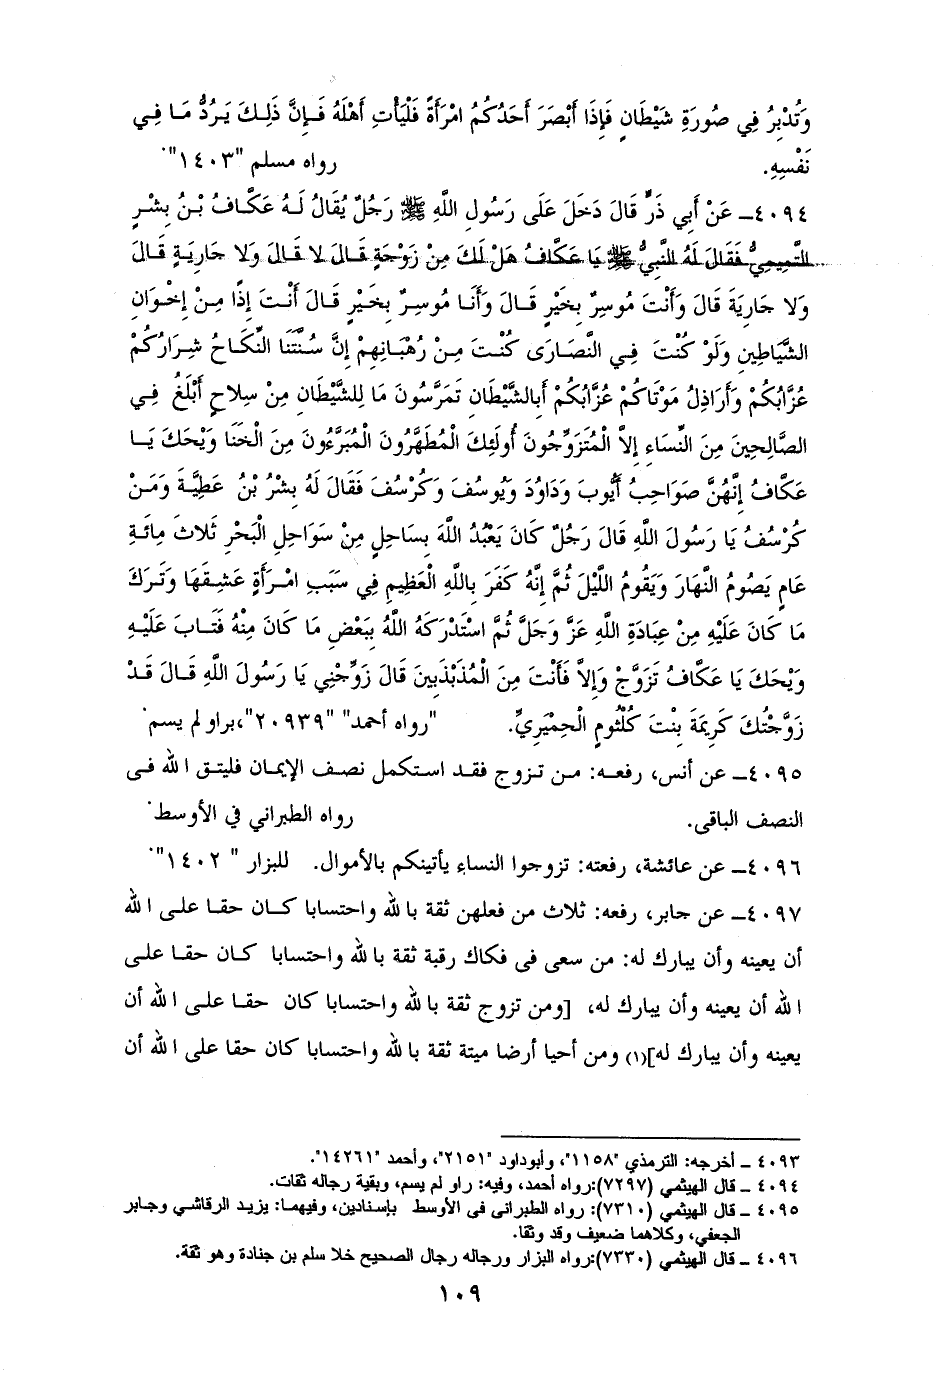 وَتُدْبِرُ فِي صُورَةِ شَيْطَانٍ فَإِذَا أَبْصَرَ أَحَدُكُمُ امْرَأَةً فَلْيَأْتِ أَهْلَهُ فَإِنَّ ذَلِكَ يَرُدُّ مَا فِي
نَفْسِهِ. رواه مسلم "١٤٠٣".
٤٠٩٤ـ عَنْ أَبِي ذَرٍّ قَالَ دَخَلَ عَلَى رَسُولِ اللَّهِ ﷺ رَجُلٌ يُقَالُ لَهُ عَكَّافُ بْنُ بِشْرٍ
التَّمِيمِيُّ فَقَالَ لَهُ النَّبِيُّ ﷺ يَا عَكَّافُ هَلْ لَكَ مِنْ زَوْجَةٍ قَالَ لا قَالَ وَلا جَارِيَةٍ قَالَ
وَلا جَارِيَةَ قَالَ وَأَنْتَ مُوسِرٌ بِخَيْرٍ قَالَ وَأَنَا مُوسِرٌ بِخَيْرٍ قَالَ أَنْتَ إِذًا مِنْ إِخْوَانِ
الشَّيَاطِينِ وَلَوْ كُنْتَ فِي النَّصَارَى كُنْتَ مِنْ رُهْبَانِهِمْ إِنَّ سُنَّتَنَا النِّكَاحُ شِرَارُكُمْ
عُزَّابُكُمْ وَأَرَاذِلُ مَوْتَاكُمْ عُزَّابُكُمْ أَبِالشَّيْطَانِ تَمَرَّسُونَ مَا لِلشَّيْطَانِ مِنْ سِلاحٍ أَبْلَغُ فِي
الصَّالِحِينَ مِنَ النِّسَاءِ إِلاَّ الْمُتَزَوِّجُونَ أُولَئِكَ الْمُطَهَّرُونَ الْمُبَرَّءُونَ مِنَ الْخَنَا وَيْحَكَ يَا
عَكَّافُ إِنَّهُنَّ صَوَاحِبُ أَيُّوبَ وَدَاوُدَ وَيُوسُفَ وَكُرْسُفَ فَقَالَ لَهُ بِشْرُ بْنُ عَطِيَّةَ وَمَنْ
كُرْسُفُ يَا رَسُولَ اللَّهِ قَالَ رَجُلٌ كَانَ يَعْبُدُ اللَّهَ بِسَاحِلٍ مِنْ سَوَاحِلِ الْبَحْرِ ثَلاثَ مِائَةِ
عَامٍ يَصُومُ النَّهَارَ وَيَقُومُ اللَّيْلَ ثُمَّ إِنَّهُ كَفَرَ بِاللَّهِ الْعَظِيمِ فِي سَبَبِ امْرَأَةٍ عَشِقَهَا وَتَرَكَ
مَا كَانَ عَلَيْهِ مِنْ عِبَادَةِ اللَّهِ عَزَّ وَجَلَّ ثُمَّ اسْتَدْرَكَهُ اللَّهُ بِبَعْضِ مَا كَانَ مِنْهُ فَتَابَ عَلَيْهِ
وَيْحَكَ يَا عَكَّافُ تَزَوَّجْ وَإِلاَّ فَأَنْتَ مِنَ الْمُذَبْذَبِينَ قَالَ زَوِّجْنِي يَا رَسُولَ اللَّهِ قَالَ قَدْ
زَوَّجْتُكَ كَرِيمَةَ بِنْتَ كُلْثُومٍ الْحِمْيَرِيِّ. "رواه أحمد" "٢٠٩٣٩"، براو لم يسم.
٤٠٩٥ـ عن أنس، رفعه: من تزوج فقد استكمل نصف الإيمان فليتق الله فى
النصف الباقى. رواه الطبراني في الأوسط.
٤٠٩٦ـ عن عائشة، رفعته: تزوجوا النساء يأتينكم بالأموال. للبزار "١٤٠٢".
٤٠٩٧ـ عن جابر، رفعه: ثلاث من فعلهن ثقة بالله واحتسابا كان حقا على الله
أن يعينه وأن يبارك له: من سعى فى فكاك رقبة ثقة بالله واحتسابا كان حقا على
الله أن يعينه وأن يبارك له، [ومن تزوج ثقة بالله واحتسابا كان حقا على الله أن
يعينه وأن يبارك له](١) ومن أحيا أرضا ميتة ثقة بالله واحتسابا كان حقا على الله أن
٤٠٩٣ ـ أخرجه: الترمذي "١١٥٨"، وأبوداود "٢١٥١"، وأحمد "١٤٢٦١".
٤٠٩٤ ـ قال الهيثمي (٧٢٩٧): رواه أحمد، وفيه: راو لم يسم، وبقية رجاله ثقات.
٤٠٩٥ ـ قال الهيثمي (٧٣١٠): رواه الطبرانى فى الأوسط بإسنادين، وفيهما: يزيد الرقاشي وجابر
الجعفي، وكلاهما ضعيف وقد وثقا.
٤٠٩٦ ـ قال الهيثمي (٧٣٣٠): رواه البزار ورجاله رجال الصحيح خلا سلم بن جنادة وهو ثقة.
١٠٩